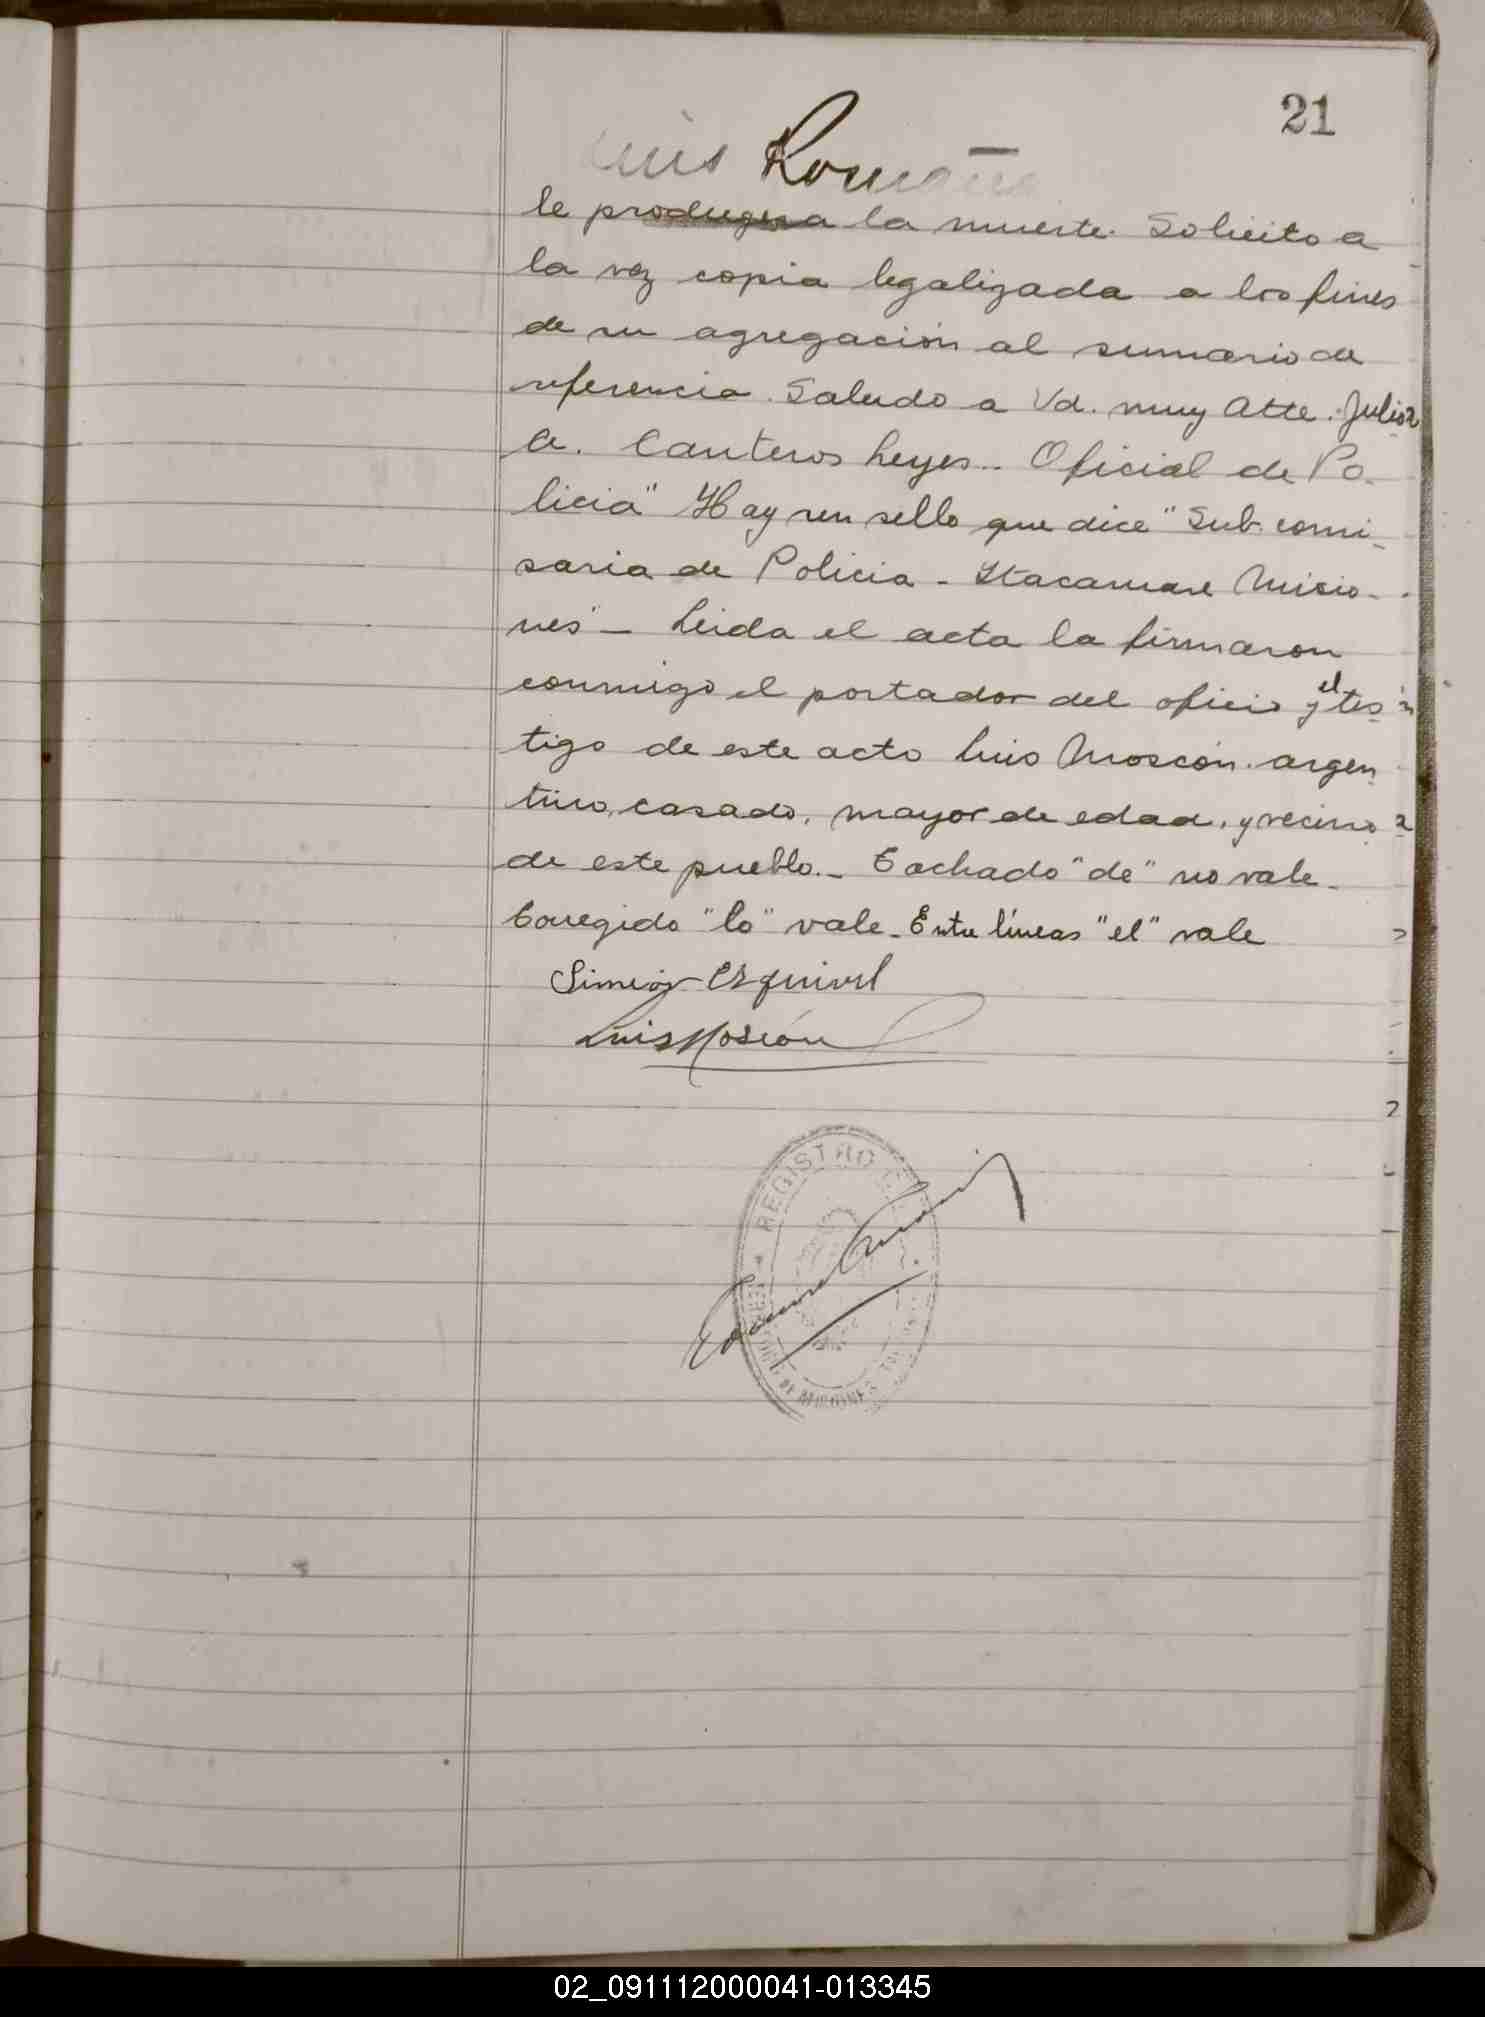 21
Luis Romana
le produgera la muerte. Solicito a
la vez copia legalizada a los fines
de su agregación al sumario de
referencia. Saludo a Vd. muy Atte. Julio
A. Canteros Leyes.. Oficial de Po-
licia" Hay un sello que dice "Sub comi-
saria de Policia - Itacaruaré Misio-
nes" - Leida el acta la firmaron
conmigo el portador del oficio y el tes-
tigo de este acto Luis Moscón. argen-
tino, casado, mayor de edad, y vecino
de este pueblo.- Tachado "de" no vale -
Corregido "lo" vale - Entre líneas "el" vale
Simeón Esquivel
Luis Moscón
REGISTRO
DE MISIONES
02_091112000041-013345